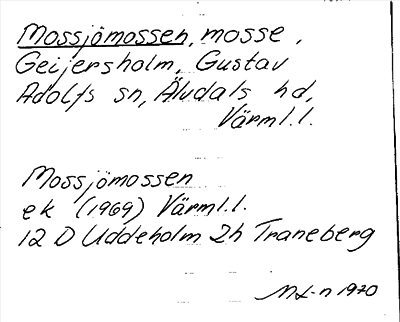 Mossjömossen, mosse,
Geijersholm, Gustav
Adolfs sn, Älvdals hd,
Värml.l.
Mossjömossen
ek (1969) Värml.l.
12 D Uddeholm 2h Traneberg
1970